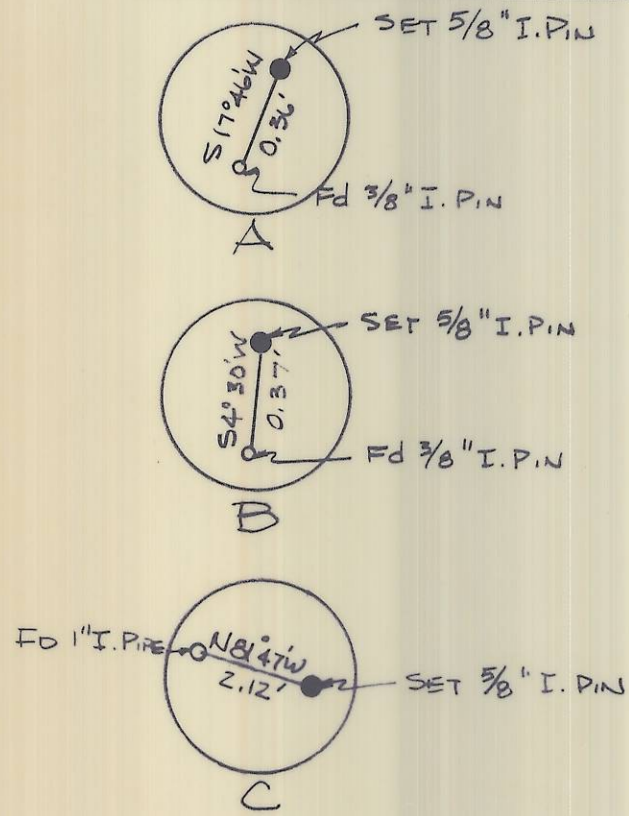 SET 5/8" I. PIN
S 17°46'W
0.36'
Fd 3/8" I. PIN
A
SET 5/8" I. PIN
S4°30'W
0.37'
Fd 3/8" I. PIN
B
FD 1" I. PIPE
N81°47'W
2.12'
SET 5/8" I. PIN
C